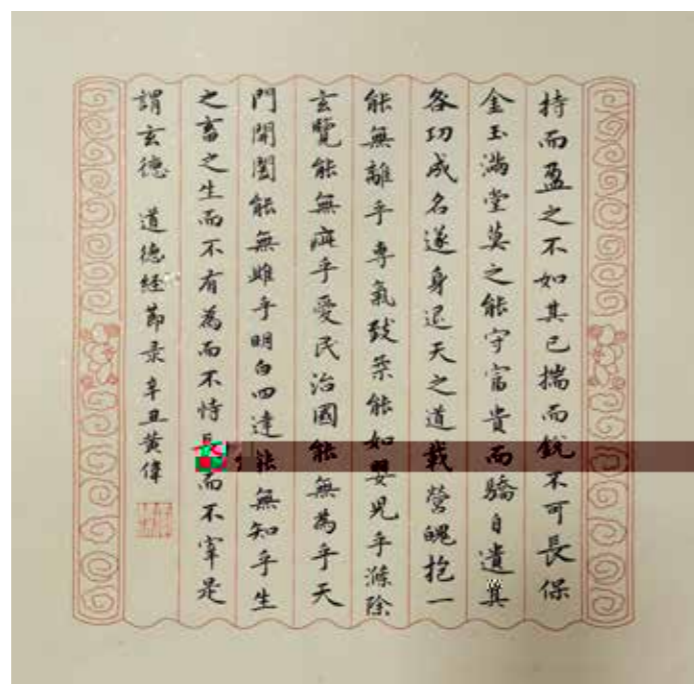 持而盈之不如其已揣而銳不可長保
金玉滿堂莫之能守富貴而驕自遺其
咎功成名遂身退天之道載營魄抱一
能無離乎專氣致柔能如嬰兒乎滌除
玄覽能無疵乎愛民治國能無為乎天
門開闔能無雌乎明白四達能無知乎生
之畜之生而不有為而不恃長而不宰是
謂玄德 道德經節录辛丑黄偉